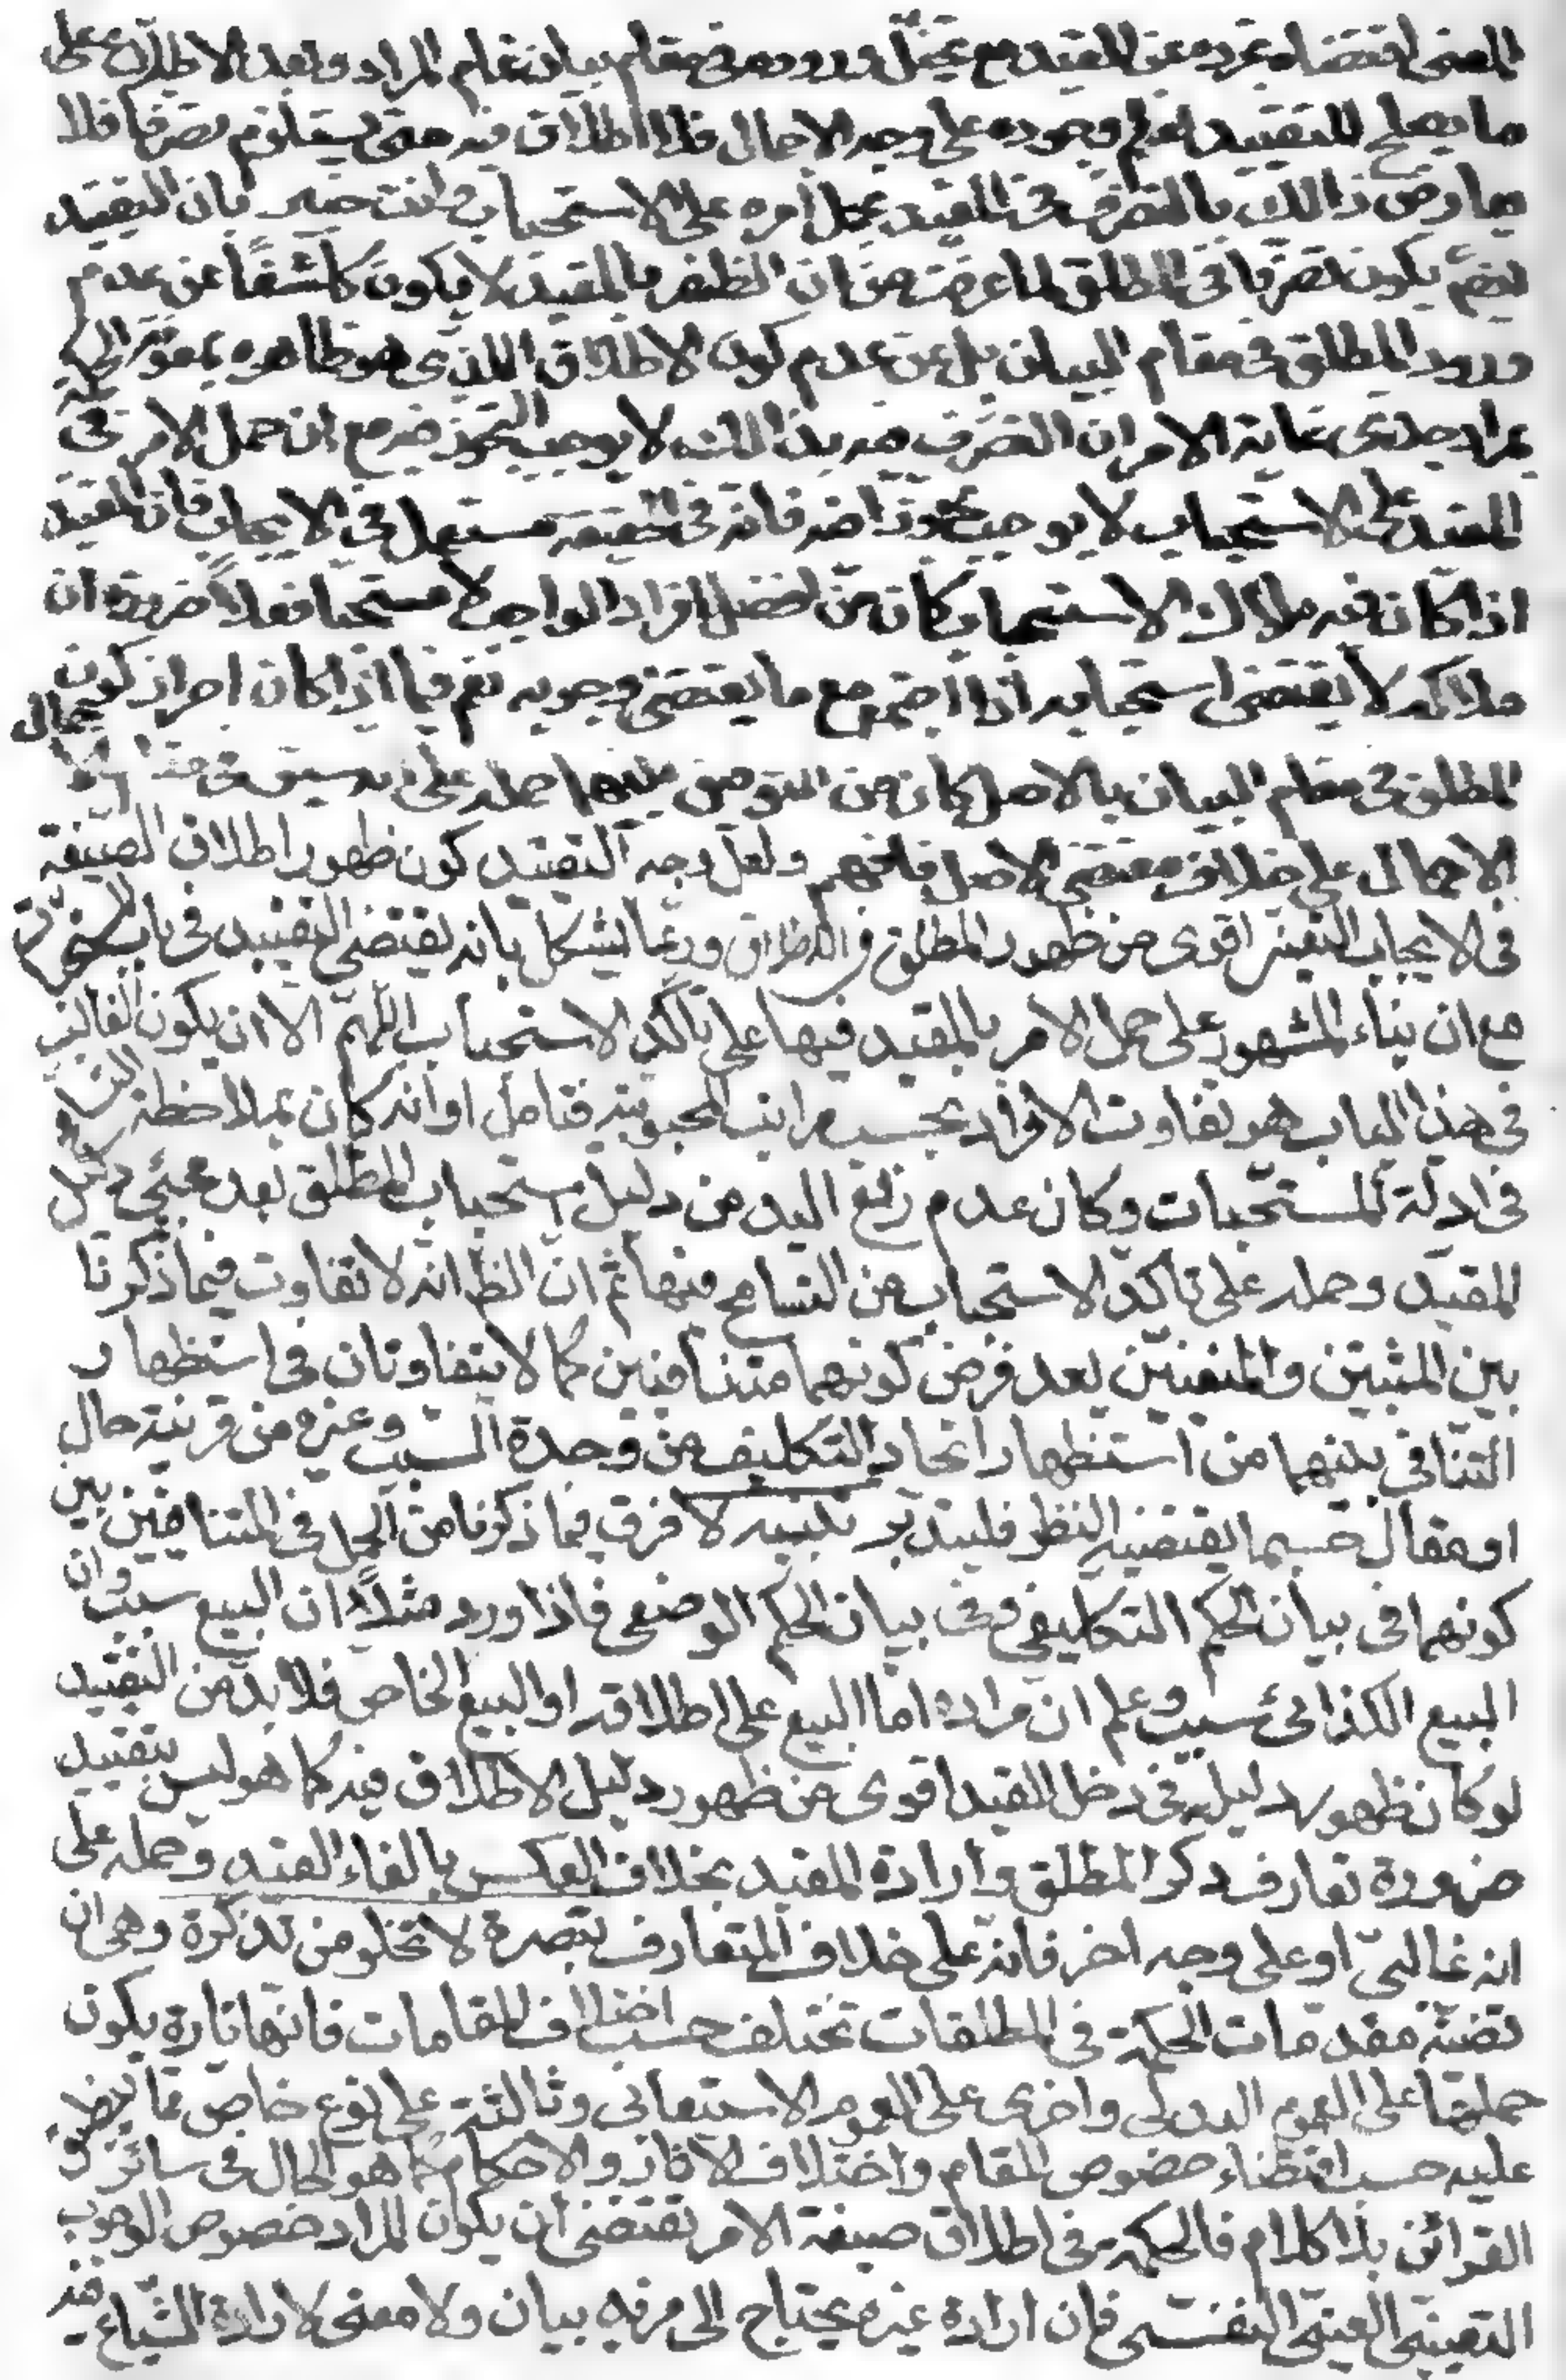 المعنى اقتضاه تجرده عن القيد مع تخيل وروده في مقام بيان تمام المراد وبعد الاطلاع على
ما يصلح للتقييد نعلم وجوده على وجه الاجمال فلا اطلاق فيه حتى يستلزم تصرفا فلا
يعارض ذالك بالتصرف في المقيد بحمل أمره على الاستحباب وانت خبير بان التقييد
ليس يكون تصرّفا في المطلق لما عرفت من ان الظفر بالمقيد لا يكون كاشفًا عن عدم
ورود المطلق في مقام البيان بل عن عدم كون الاطلاق الذي هو ظاهره بمعونة الحكمة
بمراد جدى غاية الامر ان التصرف فيه بذالك لا يوجب التجوز فيه مع ان حمل الامر في
المقيد على الاستحباب لا يوجب تجوزا فيه فانه في الحقيقة مستعمل في الايجاب فان المقيد
اذا كان فيه ملاك الاستحباب كان من افضل افراد الواجب لا مستحبا فعلاً ضرورة ان
ملاكه لا يقتضى استحبابه اذا اجتمع مع ما يقتضى وجوبه نعم فيما اذا كان احراز كون
المطلق في مقام البيان بالاصل كان من التوفيق بينهما حمله على انه سيق في مقام الاهمال
الاجمال على خلاف مقتضى الاصل فافهم ولعل وجه التقييد كون ظهور اطلاق الصيغة
في الايجاب التعييني اقوى من ظهور المطلق في الاطلاق وربما يشكل بانه يقتضى التقييد في باب المستحبات
مع ان بناء المشهور على حمل الامر بالمقيد فيها على تأكد الاستحباب اللّهمّ الا ان يكون الغالب
في هذا الباب هو تفاوت الافراد بحسب مراتب المحبوبية فتامل او انه كان بملاحظة التسامح
في ادلّة المستحبات وكان عدم رفع اليد من دليل استحباب المطلق بعد مجئ دليل
المقيد وحمله على تأكد الاستحباب من التسامح فيها ثم انّ الظ انه لا تفاوت فيما ذكرنا
بين المثبتين والمنفيين بعد فرض كونهما متنافيين كما لا يتفاوتان في استظهار
التنافى بينهما من استظهار اتحاد التكليف من وحدة السبب وغيره من قرينة حال
او مقال حسبما يقتضيه النظر فليتدبر تنبيه لا فرق فيما ذكرنا من الحمل في المتنافيين بين
كونهما في بيان الحكم التكليفي وفي بيان الحكم الوضعى فاذا ورد مثلاً ان البيع سبب وان
البيع الكذائى سبب وعلم ان مراده اما البيع على اطلاقه او البيع الخاص فلا بد من التقييد
لو كان ظهور دليله في دخل القيد اقوى من ظهور دليل الاطلاق فيه كما هو ليس ببعيد
ضرورة تعارف ذكر المطلق وارادة المقيد بخلاف العكس بالغاء القيد وحمله على
انه غالبىّ او على وجه اخر فانه على خلاف المتعارف تبصرة لا تخلو من تذكرة وهى ان
قضيّة مقدمات الحكمة في المطلقات تختلف حسب اختلاف المقامات فانها تارة يكون
حملها على العموم البدلى واخرى على العموم الاستيعابى وثالثة على نوع خاص مما ينطبق
عليه حسب اقتضاء خصوص المقام واختلاف الاثار والاحكام كما هو الحال في سائر
القرائن بلا كلام فالحكمة في اطلاق صيغة الامر تقتضى ان يكون المراد خصوص الوجوب
التعيينى العينى النفسى فان ارادة غيره يحتاج الى مزيد بيان ولا معنى لارادة الشياع فيه